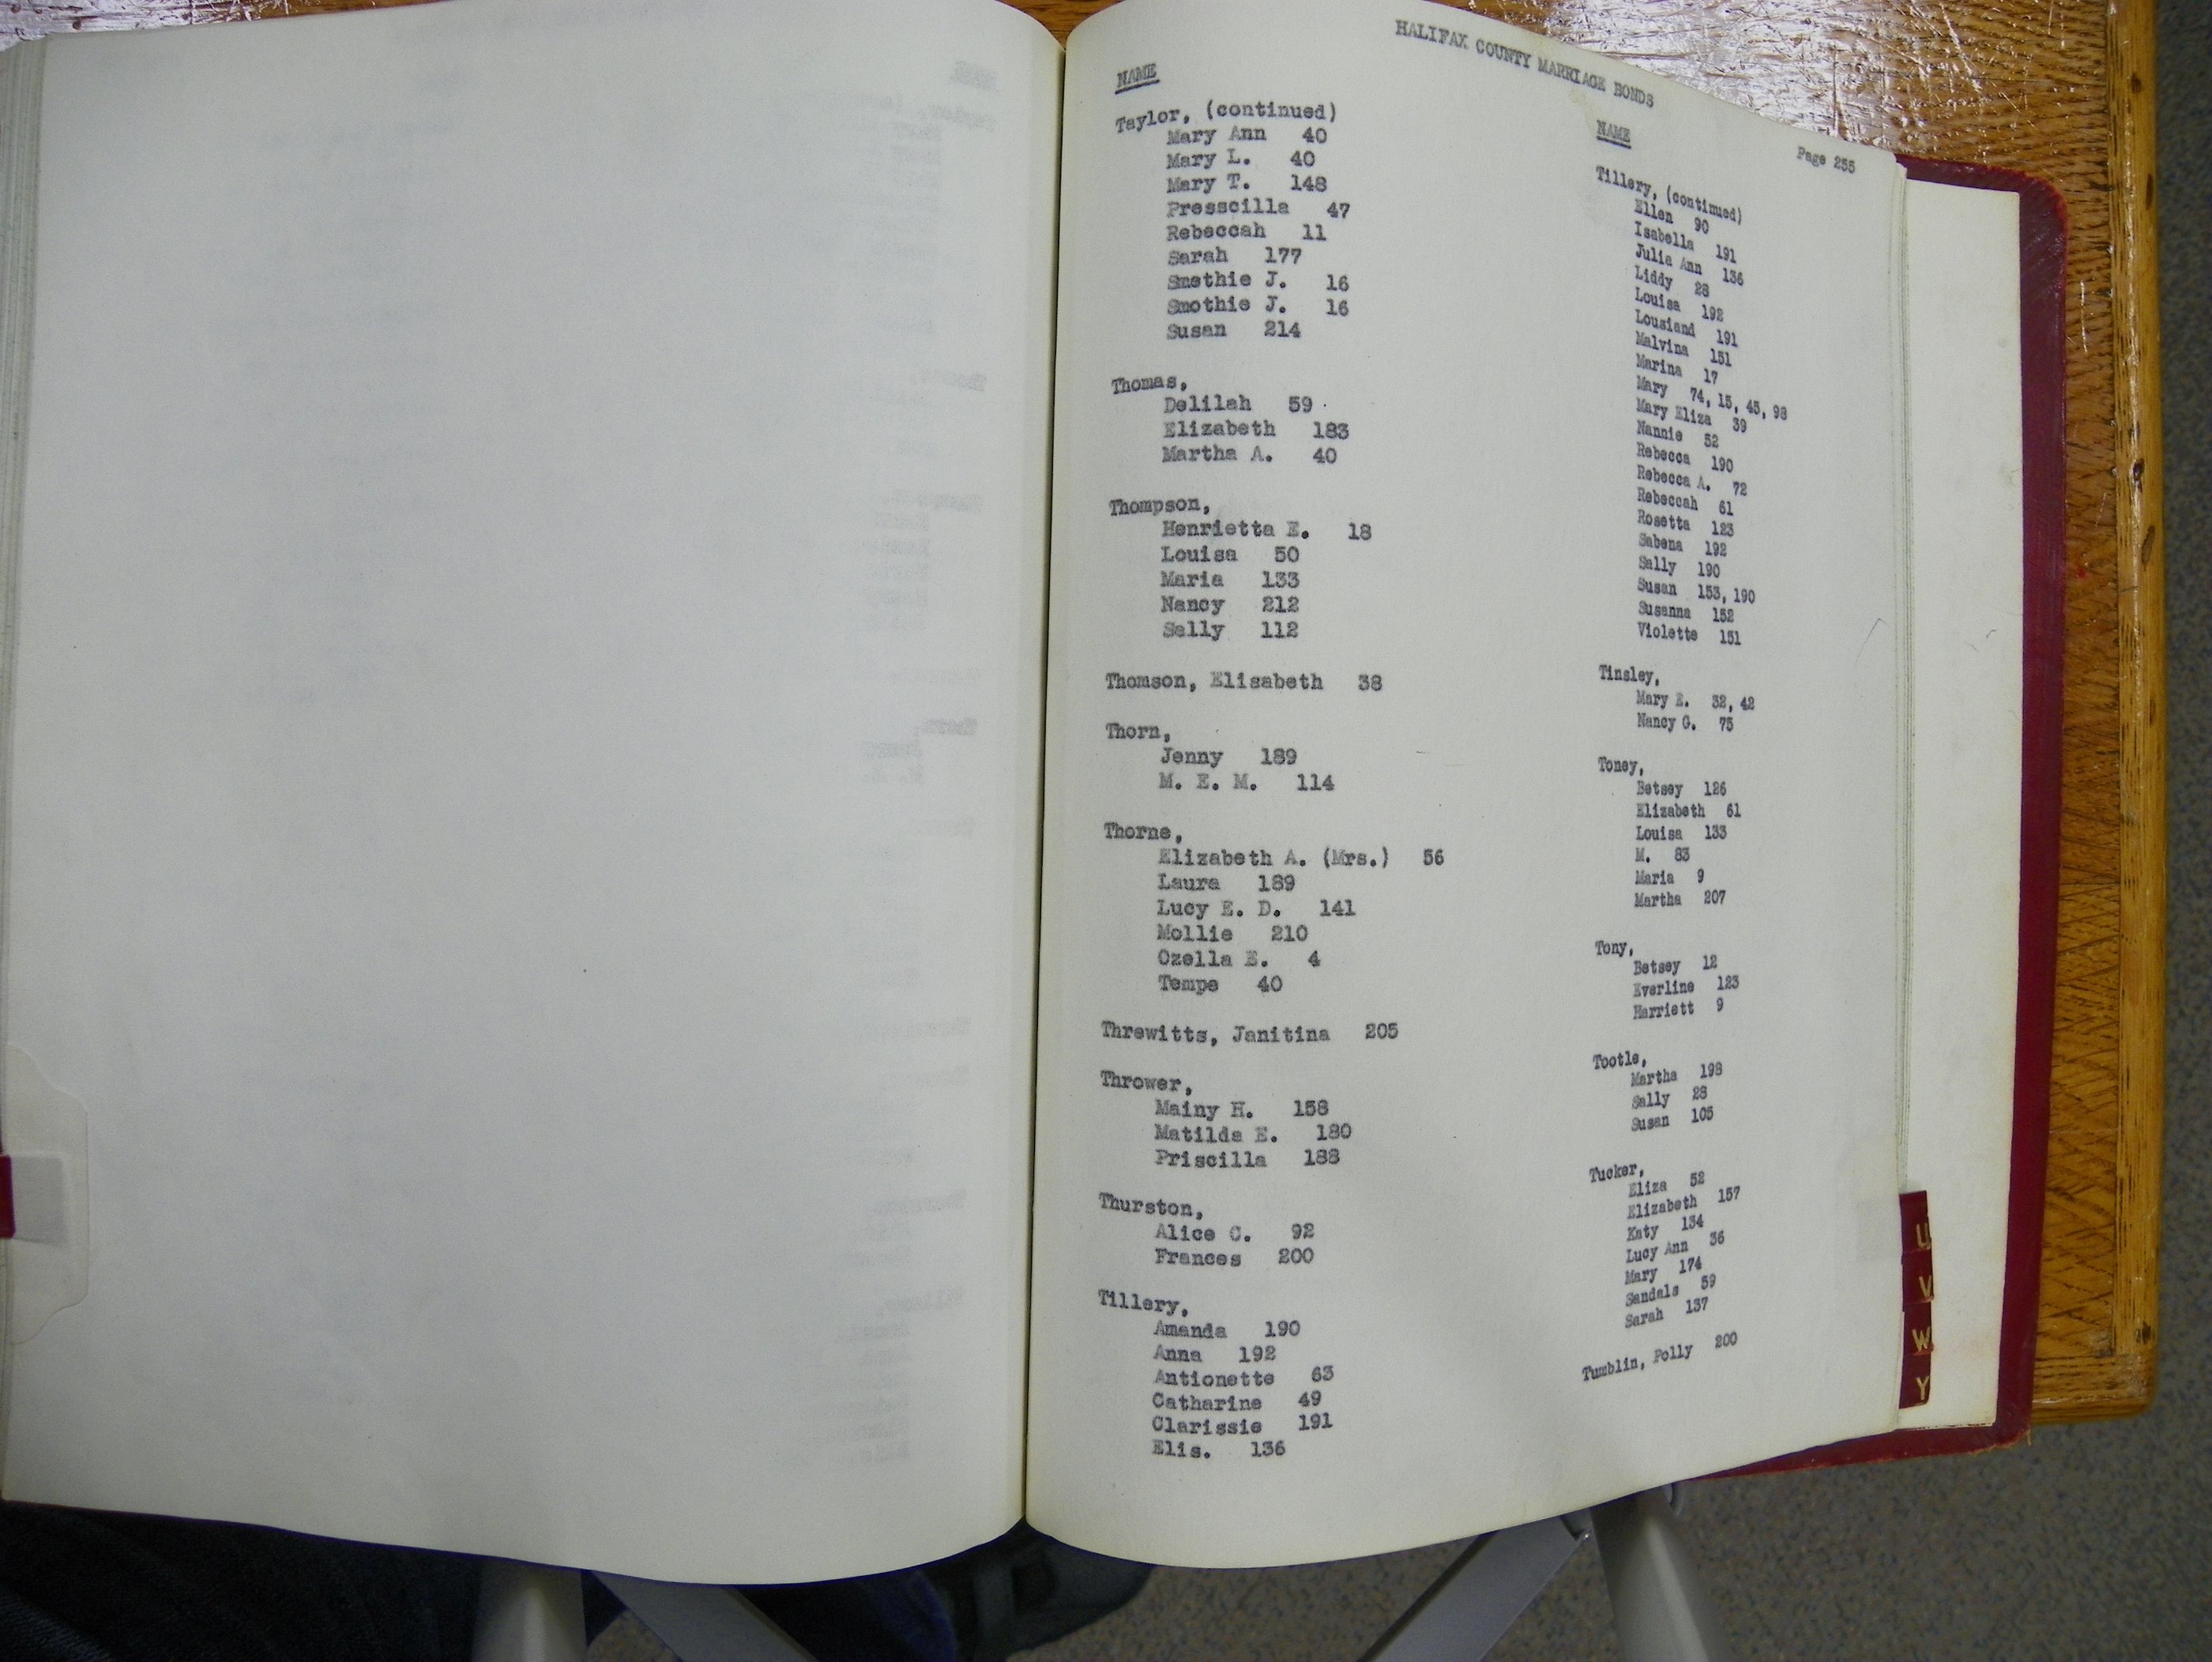 HALIFAX COUNTY MARRIAGE BONDS
Page 255
NAME
Taylor, (continued)
Mary Ann 40
Mary L. 40
Mary T. 148
Presscilla 47
Rebeccah 11
Sarah 177
Smethie J. 16
Smothie J. 16
Susan 214
Thomas,
Delilah 59
Elizabeth 183
Martha A. 40
Thompson,
Henrietta E. 18
Louisa 50
Maria 133
Nancy 212
Sally 112
Thomson, Elisabeth 38
Thorn,
Jenny 189
M. E. M. 114
Thorne,
Elizabeth A. (Mrs.) 56
Laura 189
Lucy E. D. 141
Mollie 210
Ozella E. 4
Tempe 40
Threwitts, Janitina 205
Thrower,
Mainy H. 158
Matilda E. 180
Priscilla 188
Thurston,
Alice C. 92
Frances 200
Tillery,
Amanda 190
Anna 192
Antionette 63
Catharine 49
Clarissie 191
Elis. 136
NAME
Tillery, (continued)
Ellen 90
Isabella 191
Julia Ann 136
Liddy 28
Louisa 192
Lousiand 191
Malvina 151
Marina 17
Mary 74, 15, 45, 98
Mary Eliza 39
Nannie 52
Rebecca 190
Rebecca A. 72
Rebeccah 61
Rosetta 123
Sabena 192
Sally 190
Susan 153, 190
Susanna 152
Violette 151
Tinsley,
Mary E. 32, 42
Nancy G. 75
Toney,
Betsey 126
Elizabeth 61
Louisa 133
M. 83
Maria 9
Martha 207
Tony,
Betsey 12
Everline 123
Harriett 9
Tootle,
Martha 198
Sally 28
Susan 105
Tucker,
Eliza 52
Elizabeth 157
Katy 134
Lucy Ann 36
Mary 174
Sandals 59
Sarah 137
Tumblin, Polly 200
U
V
W
Y